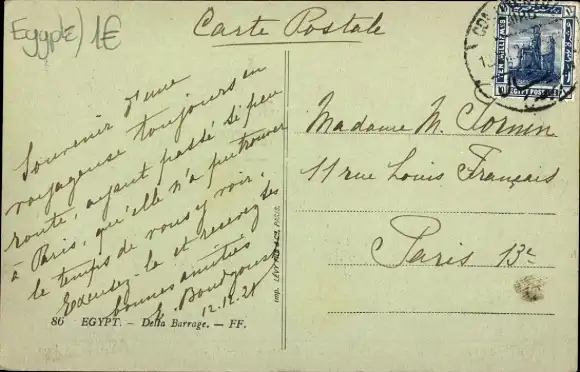 Egypte) 1€
Carte Postale
Souvenir d'une
voyageuse toujours en
route, ayant passé si peu
à Paris, qu'elle n'a pu trouver
le temps de vous y voir.
Excusez-la et recevez les
bonnes amitiés
12.12.21
86 EGYPT. - Delta Barrage. - FF.
Imp. LÉVY FILS & Cie, PARIS.
EGYPT POSTAGE
Madame M.
11 rue Louis Français
Paris 13e